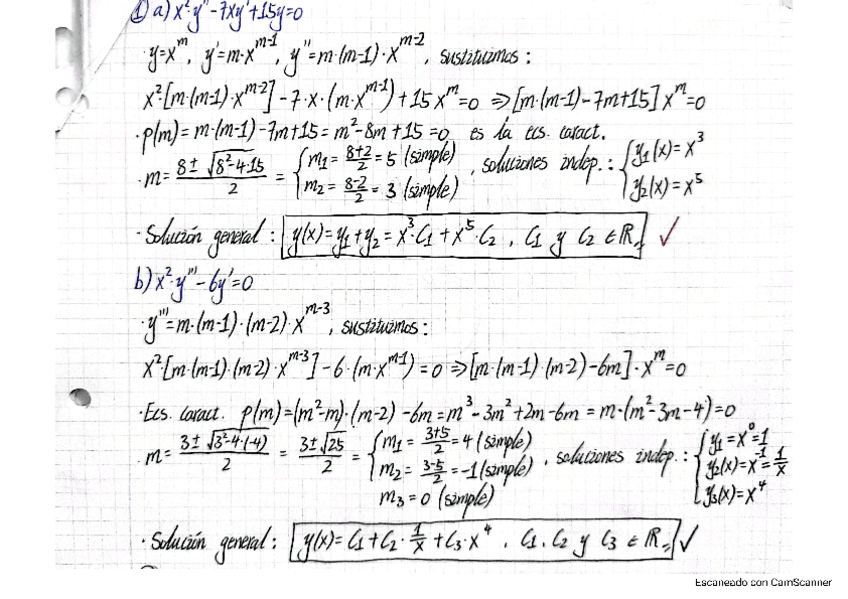 ① a) x²·y''-7xy'+15y=0
· y=x^m, y'=m·x^(m-1), y''=m·(m-1)·x^(m-2), sustituimos:
x²·[m·(m-1)·x^(m-2)]-7·x·(m·x^(m-1))+15x^m=0 ⇒[m·(m-1)-7m+15]x^m=0
· p(m)=m·(m-1)-7m+15=m²-8m+15=0 es la ecs. caract.
· m= (8±√(8²-4·15))/2 = { m₁= (8+2)/2 =5 (simple) m₂= (8-2)/2 =3 (simple) , soluciones indep.: { y₁(x)=x³ y₂(x)=x⁵
· Solución general: y(x)=y₁+y₂=x³·C₁+x⁵·C₂ , C₁ y C₂ ∈ ℝ ✓
b) x²·y'''-6y'=0
· y'''=m·(m-1)·(m-2)·x^(m-3), sustituimos:
x²·[m·(m-1)·(m-2)·x^(m-3)]-6·(m·x^(m-1))=0 ⇒[m·(m-1)·(m-2)-6m]·x^m=0
· Ecs. caract. p(m)=(m²-m)·(m-2)-6m=m³-3m²+2m-6m=m·(m²-3m-4)=0
· m= (3±√(3²-4·(-4)))/2 = (3±√25)/2 = { m₁= (3+5)/2 =4 (simple) m₂= (3-5)/2 =-1 (simple) m₃=0 (simple) , soluciones indep.: { y₁=x⁰=1 y₂(x)=x⁻¹=1/x y₃(x)=x⁴
· Solución general: y(x)=C₁+C₂·1/x+C₃·x⁴ , C₁, C₂ y C₃ ∈ ℝ ✓
Escaneado con CamScanner